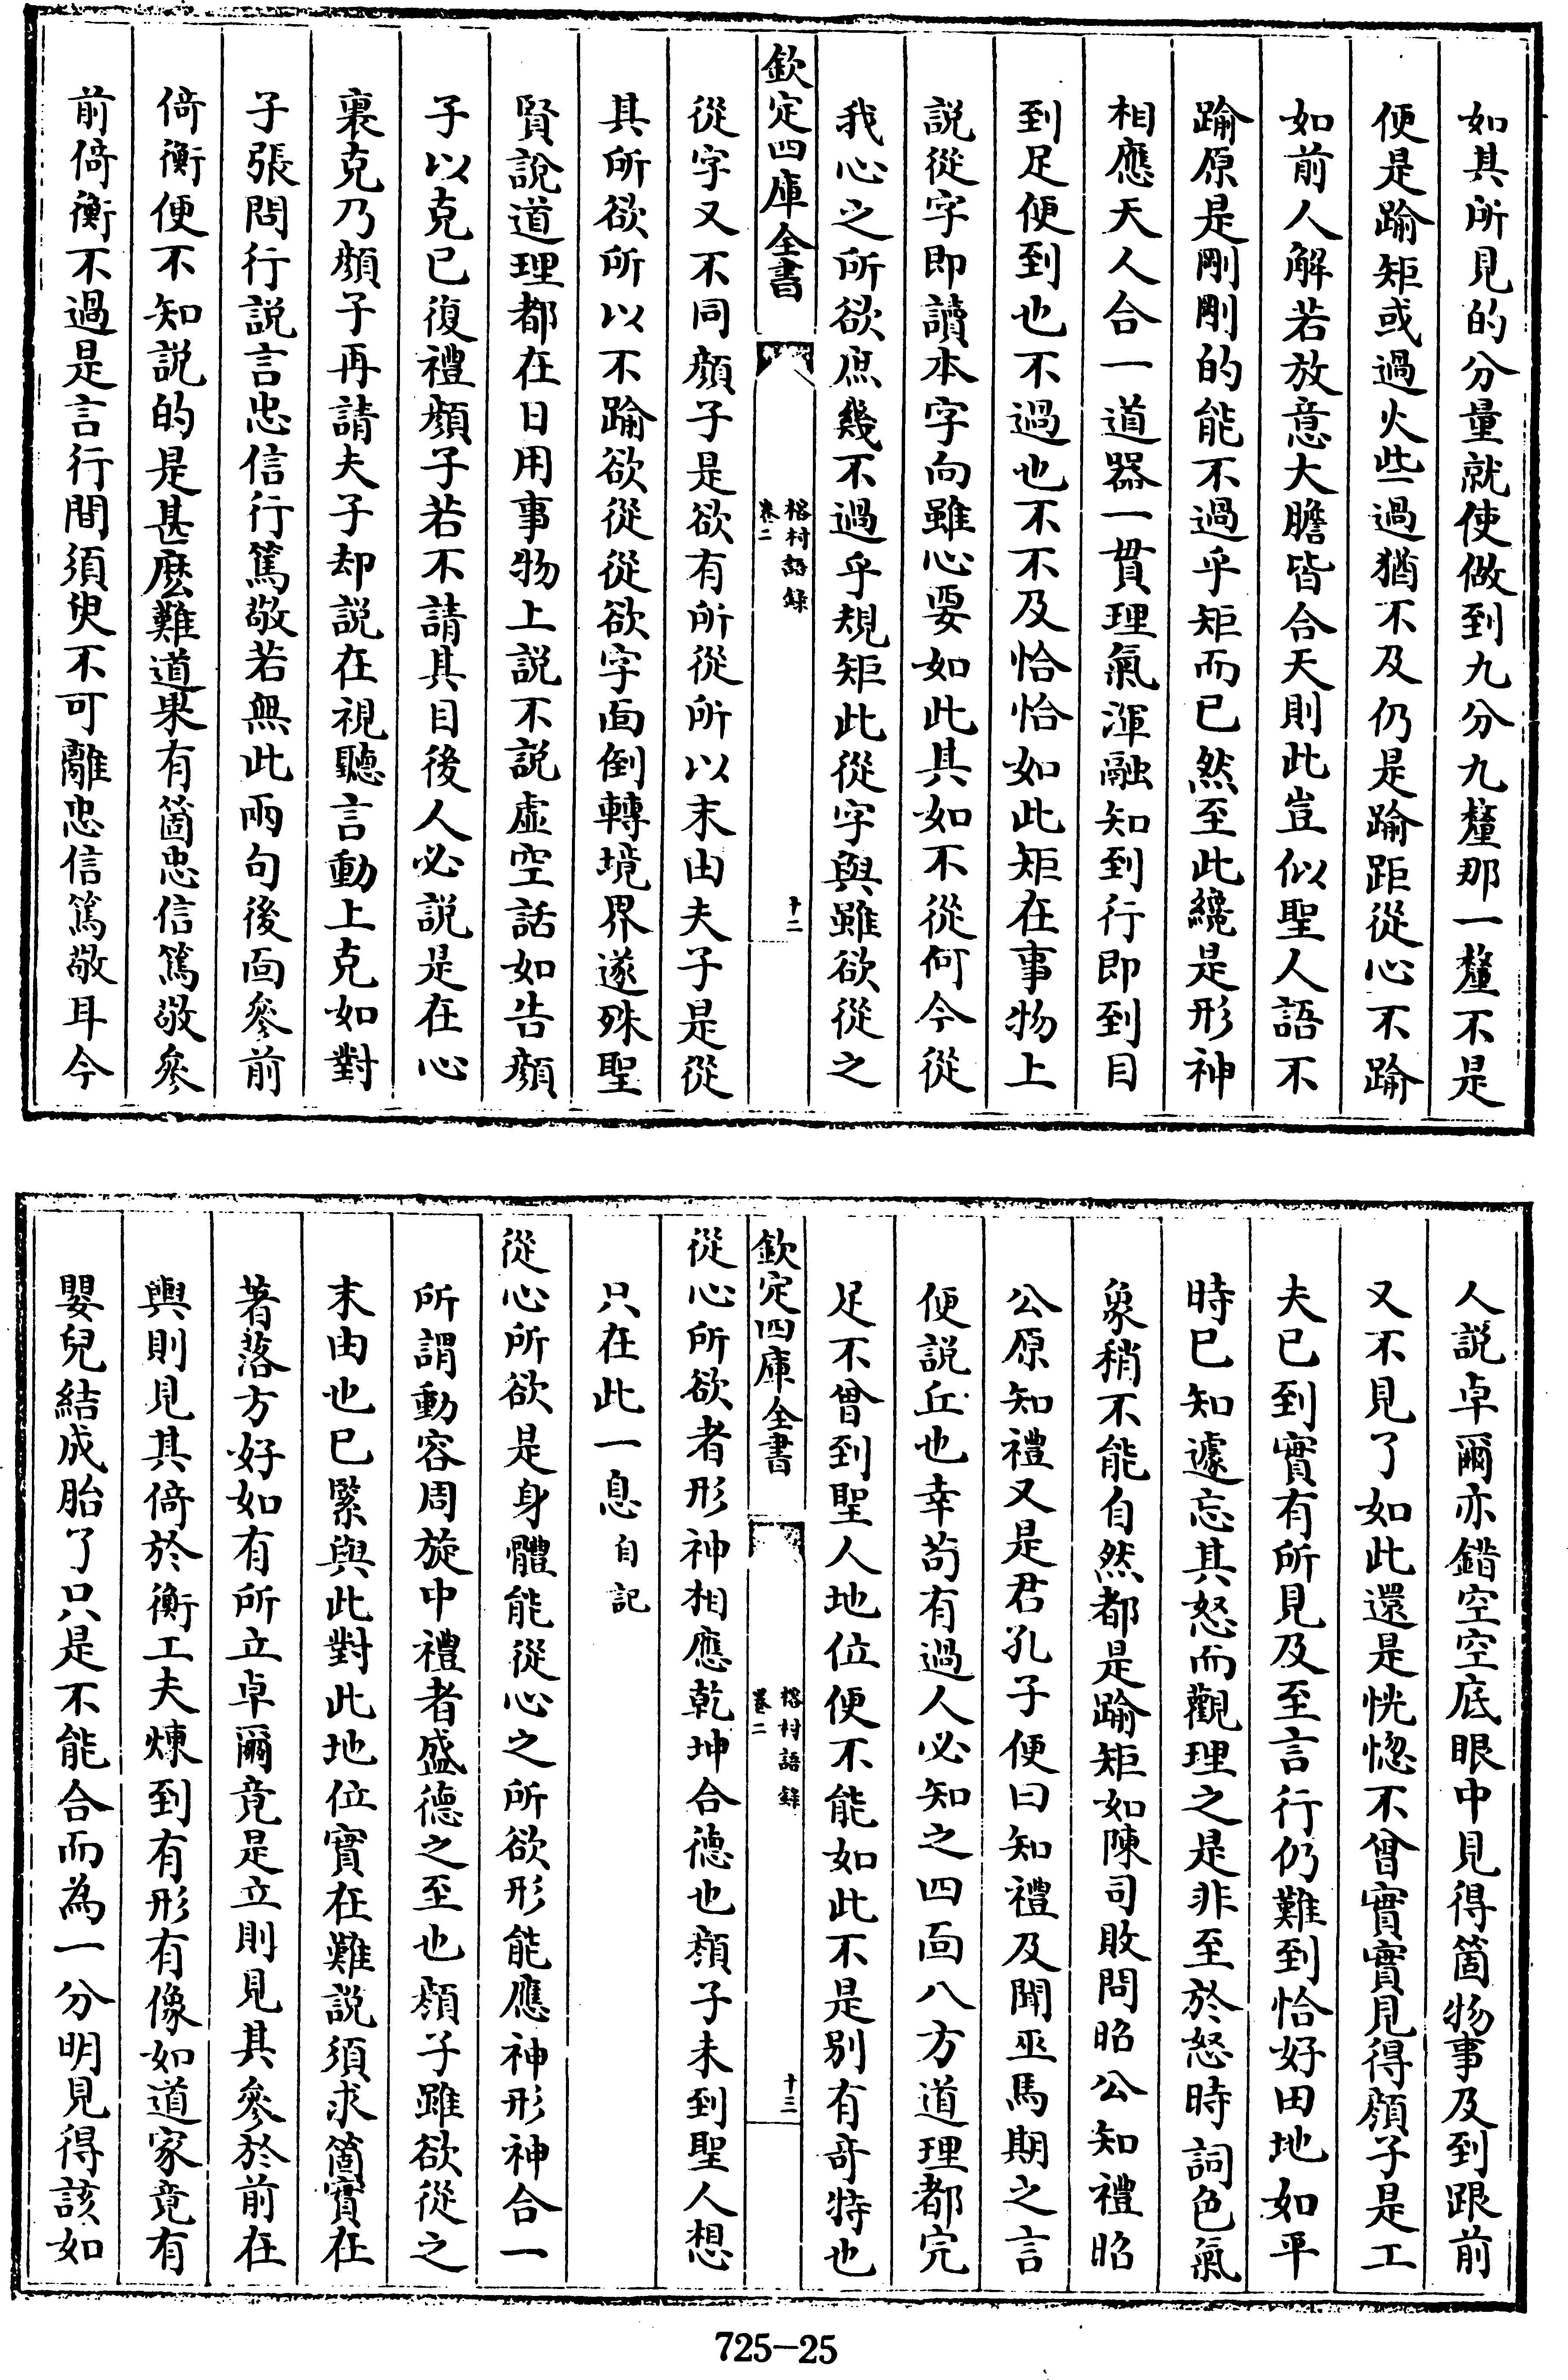 如其所見的分量就使做到九分九釐那一釐不是
便是踰矩或過火些過猶不及仍是踰距從心不踰
如前人解若放意大膽皆合天則此豈似聖人語不
踰原是剛剛的能不過乎矩而已然至此纔是形神
相應天人合一道器一貫理氣渾融知到行即到目
到足便到也不過也不不及恰恰如此矩在事物上
説從字即讀本字向雖心要如此具如不從何今從
我心之所欲庶幾不過乎規矩此從字與雖欲從之
欽定四庫全書
榕村語錄
卷二
十二
從字又不同顔子是欲有所從所以末由夫子是從
其所欲所以不踰欲從從欲字面倒轉境界遂殊聖
賢說道理都在日用事物上説不説虛空話如告顔
子以克已復禮顔子若不請其目後人必説是在心
裏克乃顔子再請夫子却説在視聽言動上克如對
子張問行説言忠信行篤敬若無此兩句後面參前
倚衡便不知説的是甚麽難道果有箇忠信篤敬參
前倚衡不過是言行間須臾不可離忠信篤敬耳今
人説卓爾亦錯空空底眼中見得箇物事及到跟前
又不見了如此還是恍惚不曾實實見得顔子是工
夫已到實有所見及至言行仍難到恰好田地如平
時已知遽忘其怒而觀理之是非至於怒時詞色氣
象稍不能自然都是踰矩如陳司敗問昭公知禮昭
公原知禮又是君孔子便曰知禮及聞巫馬期之言
便説丘也幸茍有過人必知之四面八方道理都完
足不曾到聖人地位便不能如此不是别有竒特也
欽定四庫全書
榕村語錄
卷二
十三
從心所欲者形神相應乾坤合德也顔子未到聖人想
只在此一息自記
從心所欲是身體能從心之所欲形能應神形神合一
所謂動容周旋中禮者盛德之至也顔子雖欲從之
末由也已緊與此對此地位實在難説須求箇實在
著落方好如有所立卓爾竟是立則見其參於前在
輿則見其倚於衡工夫煉到有形有像如道家竟有
嬰兒結成胎了只是不能合而為一分明見得該如
725-25